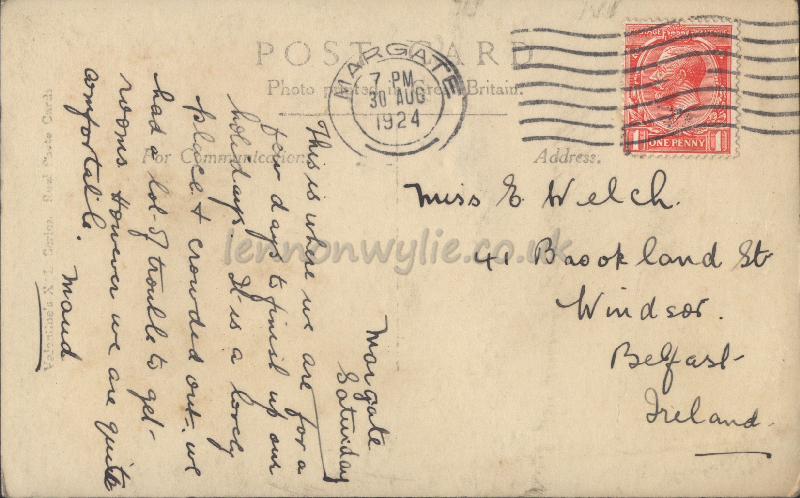 POST CARD
Photo printed in Great Britain.
For Communication
Address.
MARGATE
7 PM
30 AUG
1924
POSTAGE REVENUE
1 ONE PENNY 1
Miss E Welch.
41 Brookland St
Windsor.
Belfast
Ireland
Margate
Saturday
This is where we are for a
few days to finish up our
holidays. It is a lovely
place & crowded out. we
had a lot of trouble to get
rooms. However we are quite
comfortable. Maud
Valentine's X L Series. Real Photo Card.
lennonwylie.co.uk